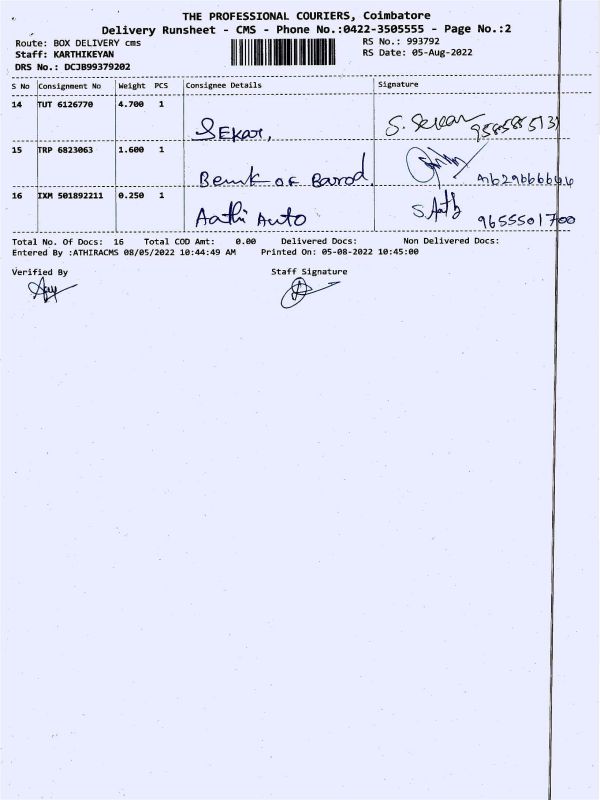 THE PROFESSIONAL COURIERS, Coimbatore
Delivery Runsheet - CMS - Phone No.:0422-3505555 - Page No.:2
Route: BOX DELIVERY cms
RS No.: 993792
Staff: KARTHIKEYAN
RS Date: 05-Aug-2022
DRS No.: DCJB99379202
S No Consignment No Weight PCS Consignee Details Signature
14 TUT 6126770 4.700 1
SEkar, S. Sekar
15 TRP 6823063 1.600 1
Bank OF Barod
16 IXM 501892211 0.250 1
Aathi Auto 9655501700
Total No. Of Docs: 16 Total COD Amt: 0.00 Delivered Docs: Non Delivered Docs:
Entered By :ATHIRACMS 08/05/2022 10:44:49 AM Printed On: 05-08-2022 10:45:00
Verified By Staff Signature